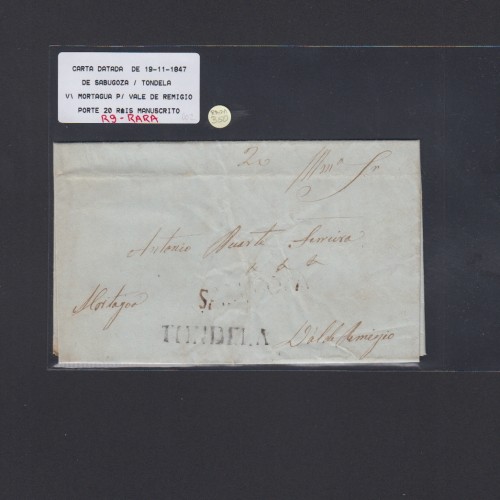 CARTA DATADA DE 19-11-1847
DE SABUGOZA / TONDELA
V\ MORTAGUA P/ VALE DE REMIGIO
PORTE 20 REIS MANUSCRITO
R9 - RARA
350
20
Illmo Sr
Antonio Duarte Ferreira
Mortagoa
TONDELA
Val de Remigio